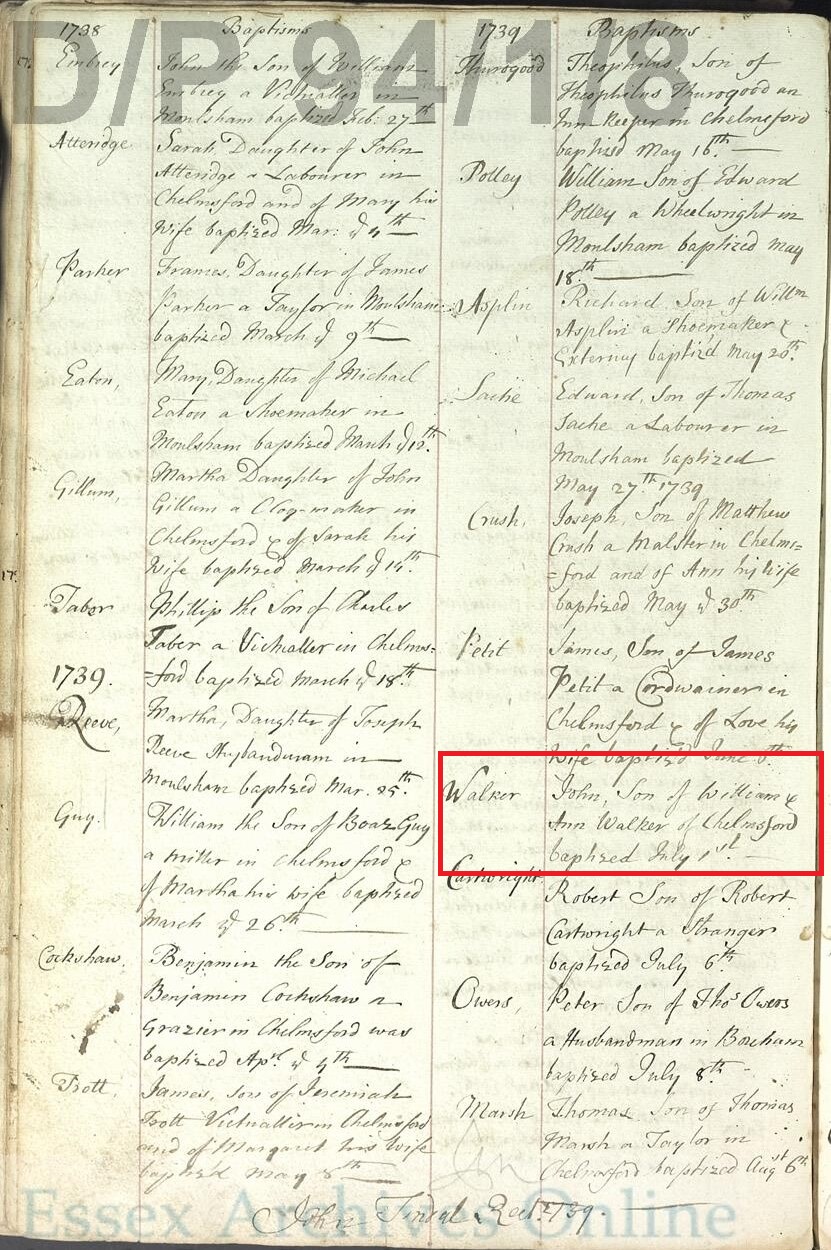 D/P 94/1/8
1738 Baptisms
Embrey John the Son of William
Embrey a Victualler in
Moulsham baptized Feb: 27th
Atteridge Sarah Daughter of John
Atteridge a Labourer in
Chelmsford and of Mary his
Wife baptized Mar: ye 4th
Parker Frances, Daughter of James
Parker a Taylor in Moulsham
baptized March ye 9th
Eaton, Mary, Daughter of Michael
Eaton a Shoemaker in
Moulsham baptized March ye 12th.
Gillum, Martha Daughter of John
Gillum a Clog-maker in
Chelmsford & of Sarah his
Wife baptized March ye 14th.
Taber Phillip the Son of Charles
Taber a Victualler in Chelms=
=ford baptized March ye 18th
1739.
Reeve, Martha, Daughter of Joseph
Reeve Husbandman in
Moulsham baptized Mar. 25th.
Guy. William the Son of Boaz Guy
a Miller in Chelmsford &
of Martha his wife baptized
March ye 26th
Cockshaw, Benjamin the Son of
Benjamin Cockshaw a
Grazier in Chelmsford was
baptized Aprl ye 4th
Trott, James, Son of Jeremiah
Trott Victualler in Chelmsford
and of Margaret his Wife
baptized May 8th
1739 Baptisms
Thurogood Theophilus, Son of
Theophilus Thurogood an
Inn keeper in Chelmsford
baptized May 16th
Polley William Son of Edward
Polley a Wheelwright in
Moulsham baptized May
18th
Asplin Richard Son of Willm
Asplin a Shoemaker &
baptized May 20th.
Sache Edward, Son of Thomas
Sache a Labourer in
Moulsham baptized
May 27th 1739
Crush, Joseph, Son of Matthew
Crush a Malster in Chelms=
=ford and of Ann his Wife
baptized May ye 30th
Petit James, Son of James
Petit a Cordwainer in
Chelmsford & of Love his
Wife baptized June
Walker John, Son of William &
Ann Walker of Chelmsford
baptized July 1st
Cartwright. Robert Son of Robert
Cartwright a Stranger
baptized July 6th
Owers, Peter Son of Thos Owers
a Husbandman in Boreham
baptized July 8th
Marsh Thomas, Son of Thomas
Marsh a Taylor in
Chelmsford baptized Augst 6th
John Tindal Rectr 1739.
Essex Archives Online